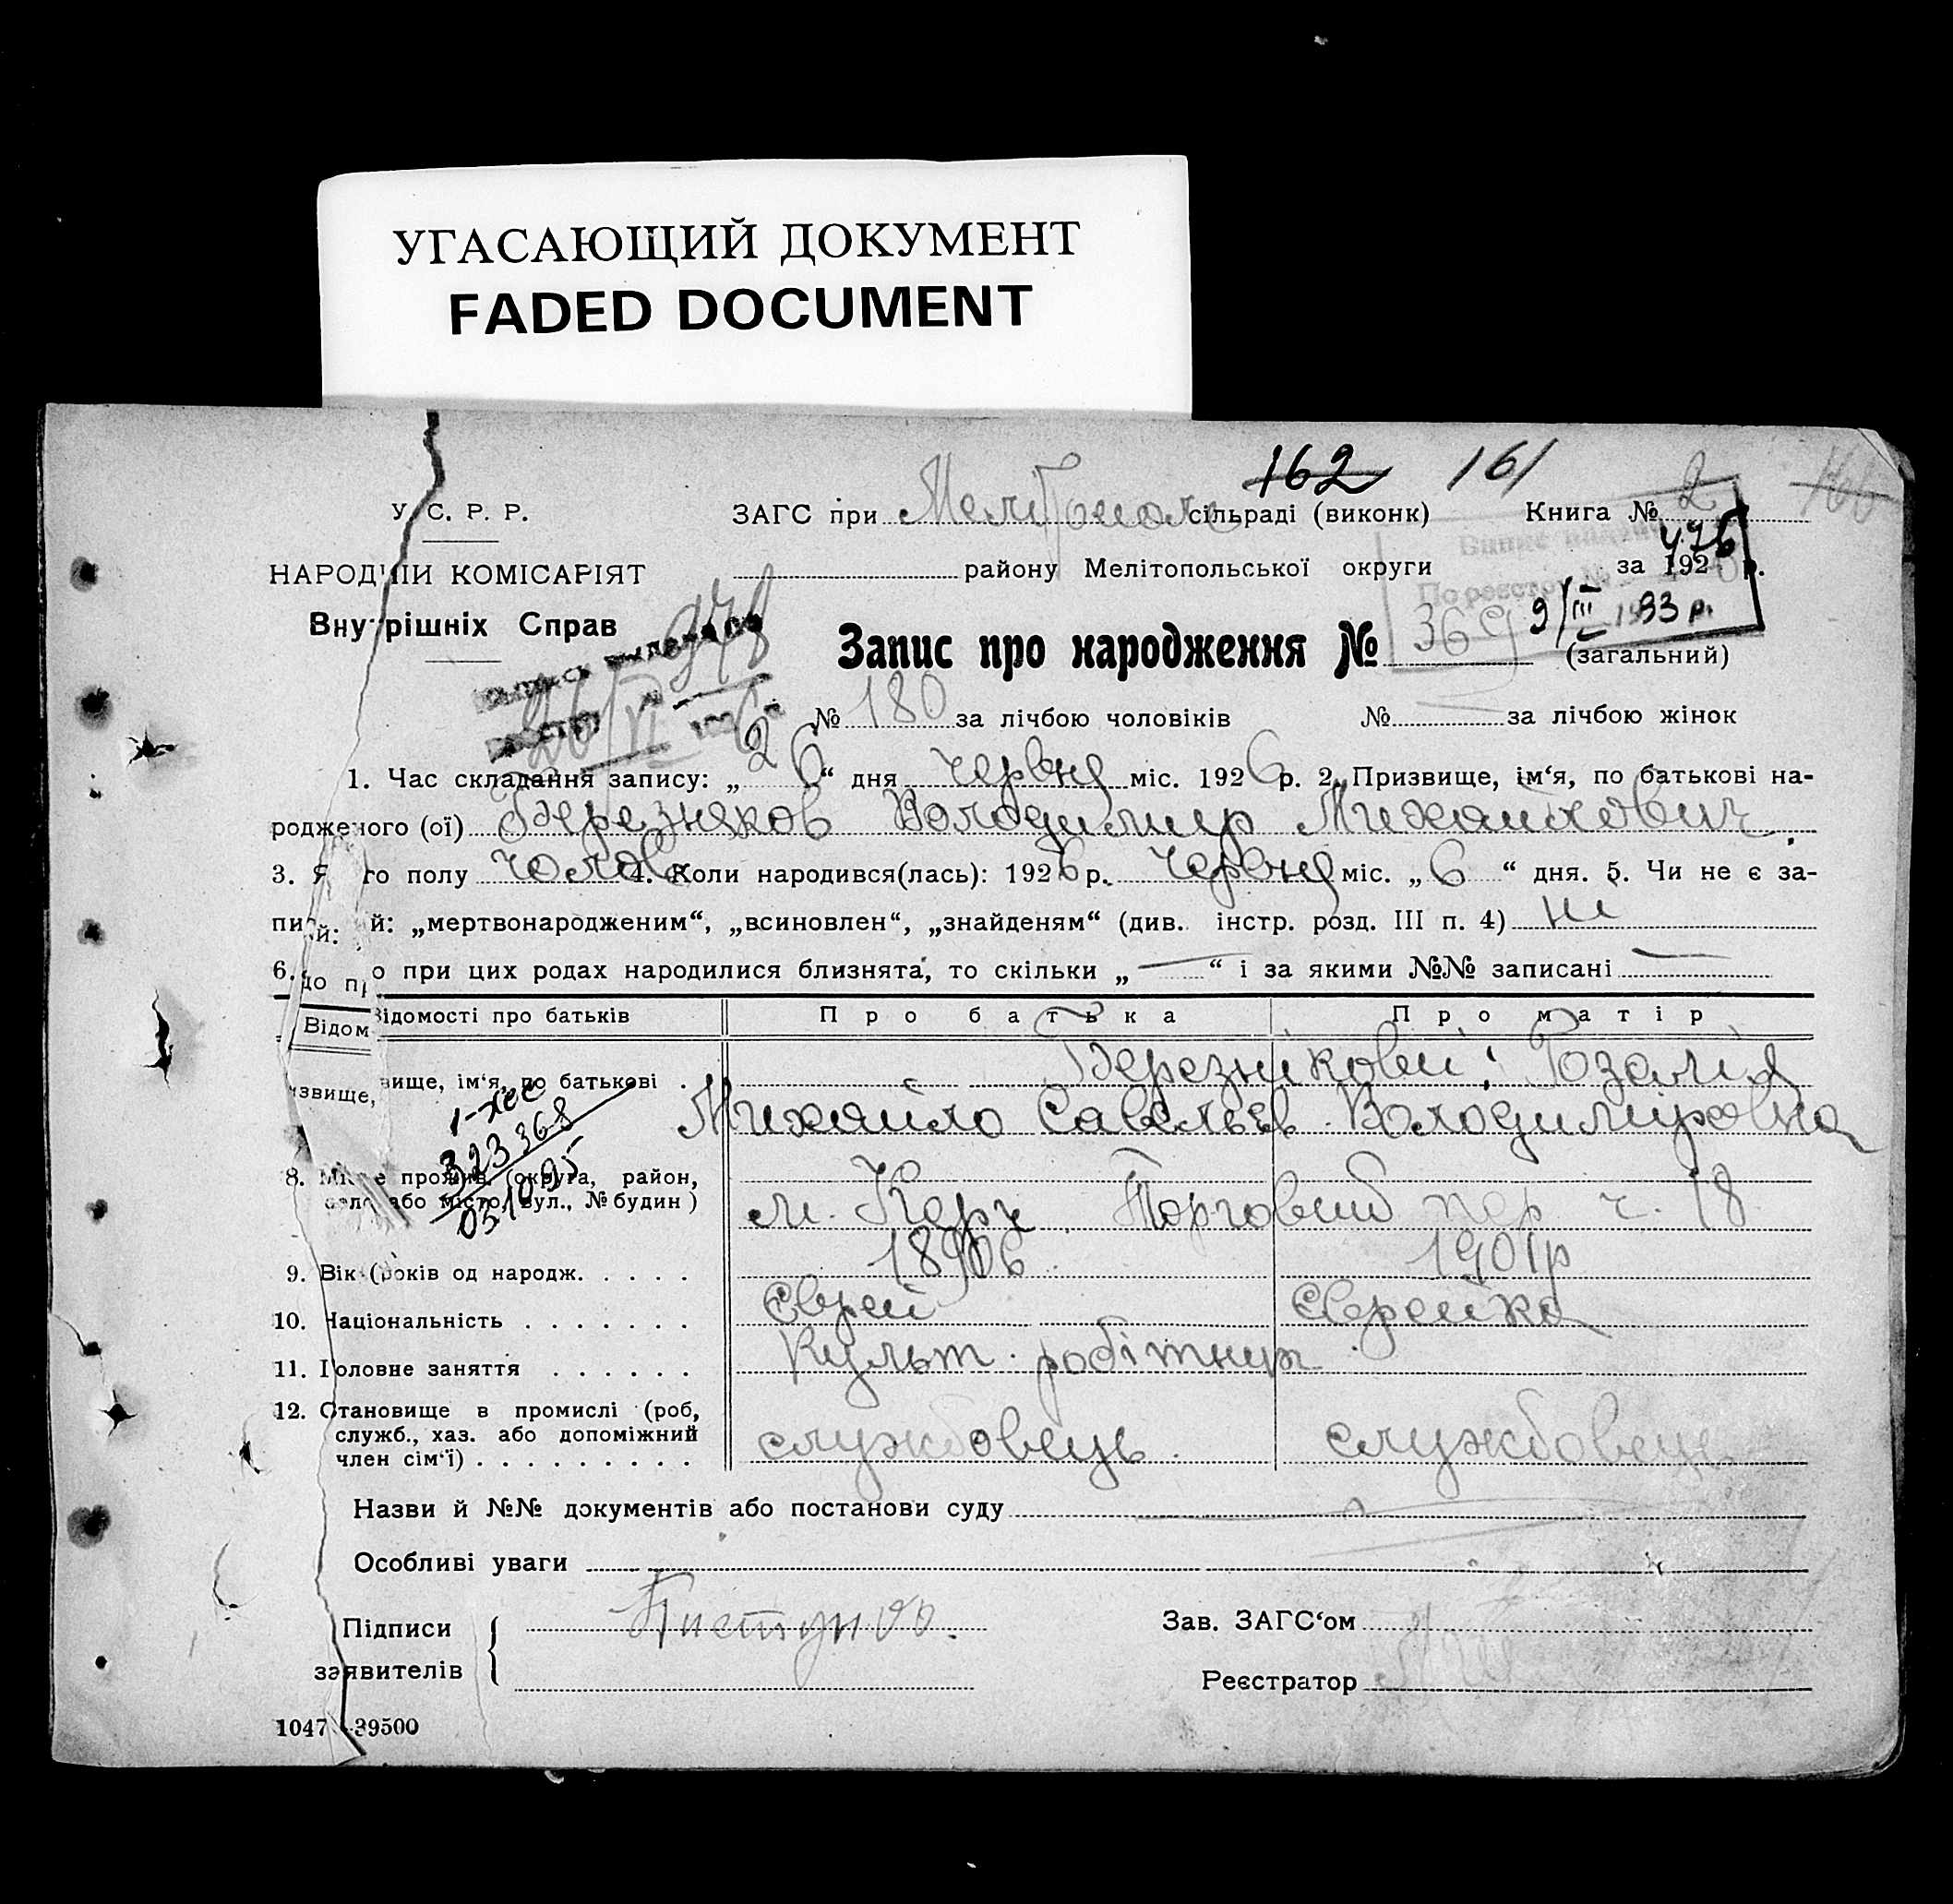 УГАСАЮЩИЙ ДОКУМЕНТ
FADED DOCUMENT
162 161 2 160
У. С. Р. Р. ЗАГС при Мелітополь сільраді (виконк) Книга №
НАРОДНІЙ КОМІСАРІЯТ району Мелітопольської округи за 192 р.
Внутрішніх Справ
978
По реєстру № 476
9/III 1993 р.
Запис про народження № 369 (загальний)
26/VI 1926
№ 180 за лічбою чоловіків № за лічбою жінок
1. Час складання запису: „26“ дня червня міс. 1926 р. 2. Призвище, ім‘я, по батькові на-
родженого (ої) Березняков Володимир Михайлович.
3. Якого полу чолов 4. Коли народився(лась): 1926 р. червня міс. „6“ дня. 5. Чи не є за-
пи й: „мертвонародженим“, „всиновлен“, „знайденям“ (див. інстр. розд. III п. 4) ні
6. о при цих родах народилися близнята, то скільки „—“ і за якими №№ записані —
Відом Відомості про батьків Про батька Про матір
Березнікови: Розалія
звище, вище, ім‘я, по батькові . Михайло Савельєв. Володиміровна
323368
05.10.95
8. Місце прожив. (округа, район, село або місто, вул., № будин) м. Керч Торговий пер ч. 18
9. Вік (років од народж. . . . . 1890в 1901р
10. Національність . . . . . . . Єврей Єврейка
11. Головне заняття . . . . . . Культ. робітник
12. Становище в промислі (роб,
служб., хаз. або допоміжний
член сім‘ї) . . . . . . . . . службовець. службовець
Назви й №№ документів або постанови суду
Особливі уваги
Підписи Зав. ЗАГС‘ом
заявителів Реєстратор
1047 -39500